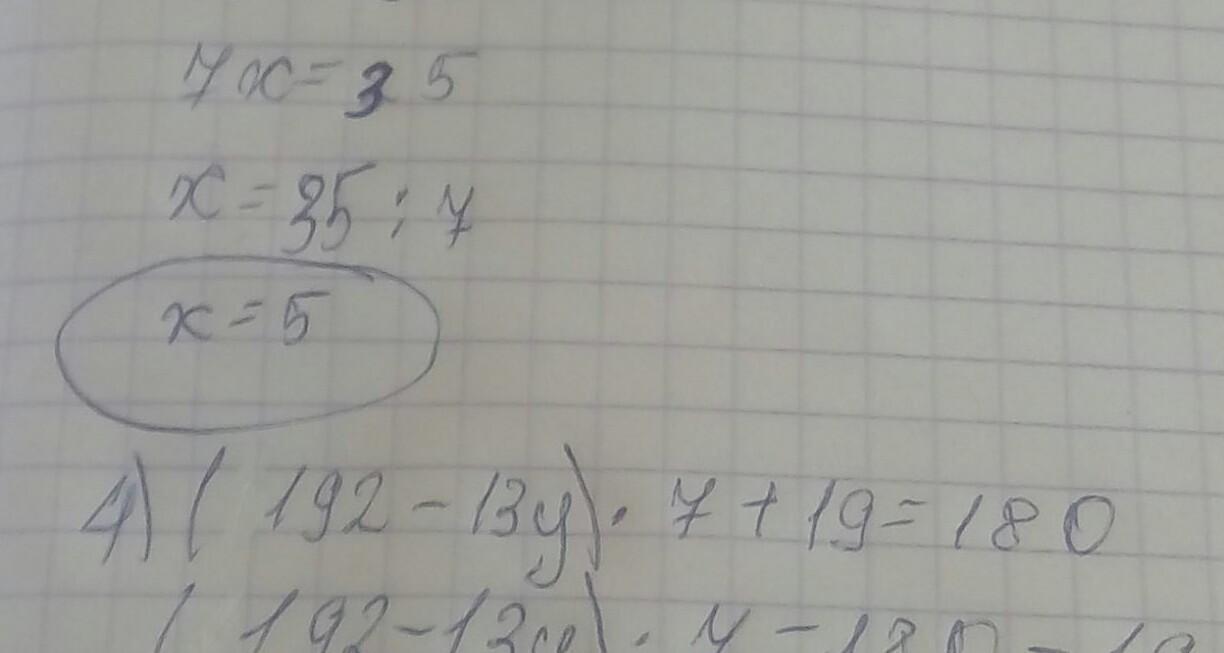 7x=35
x=35:7
x=5
4) (192-13y)·7+19=180
(192-13y)·7=180-19